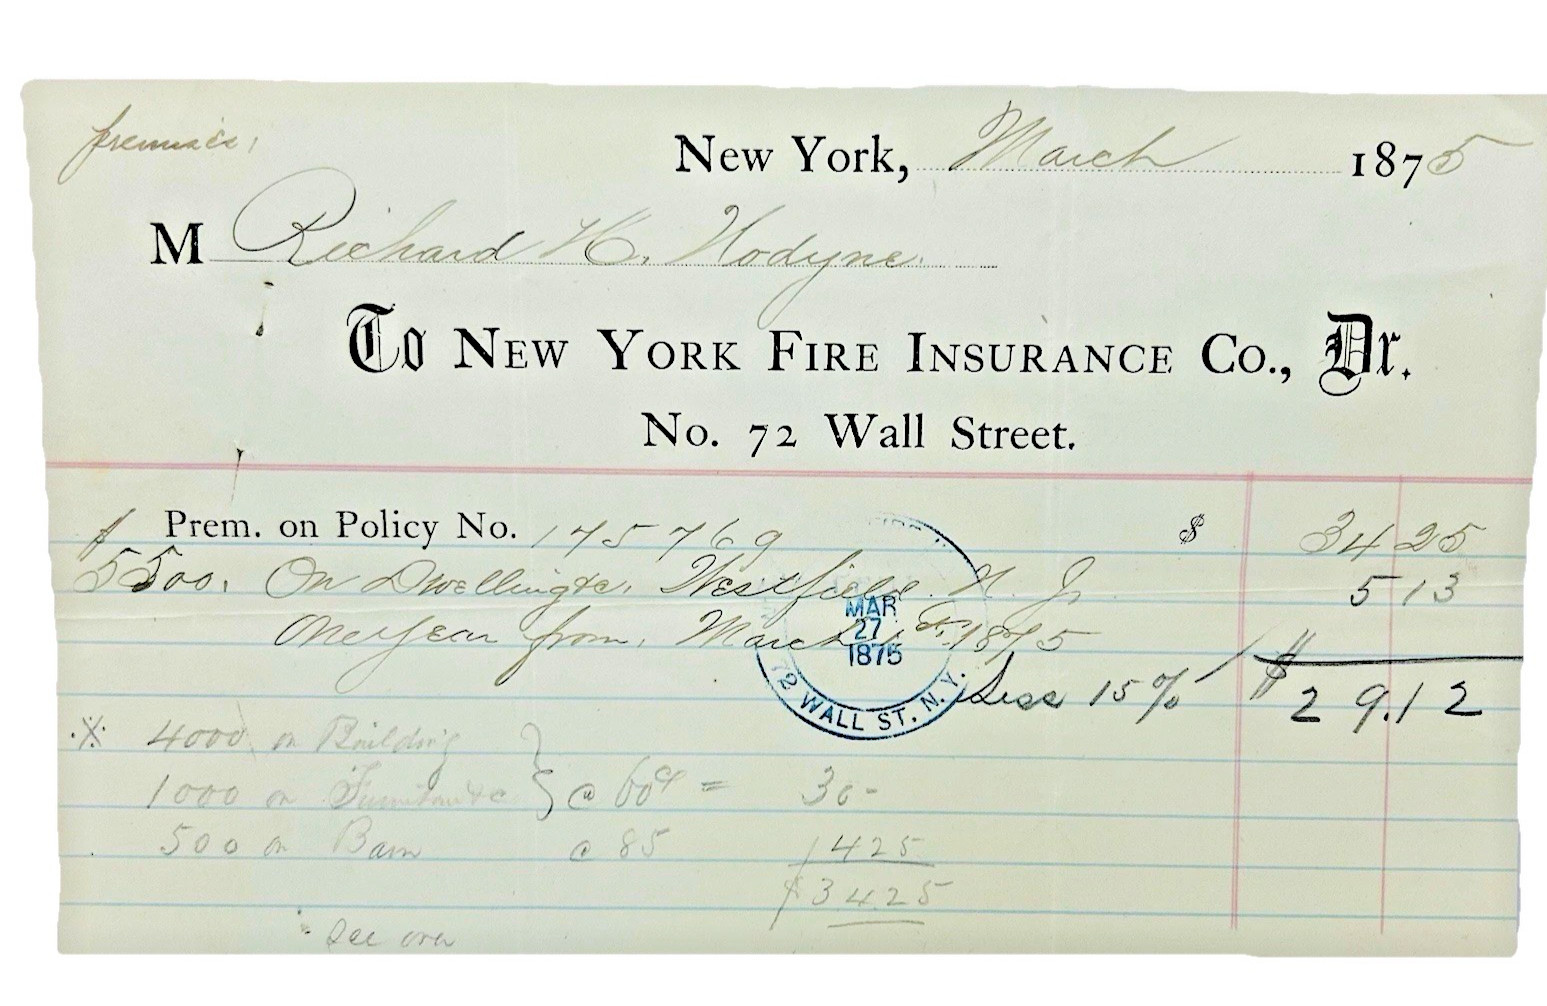 premises,
New York, March 1875
M Richard H. Hodyne.
To New York Fire Insurance Co., Dr.
No. 72 Wall Street.
$ Prem. on Policy No. 175769 $ 34 25
5500. On Dwelling &c. Westfield N. J. 5 13
One year from, March 1st 1875
MAR
27
1875
72 WALL ST. N.Y.
Less 15% $ 29.12
4000 on Building
1000 on Furniture &c @ 60c = 30-
500 on Barn @ 85 425
$ 3425
See over